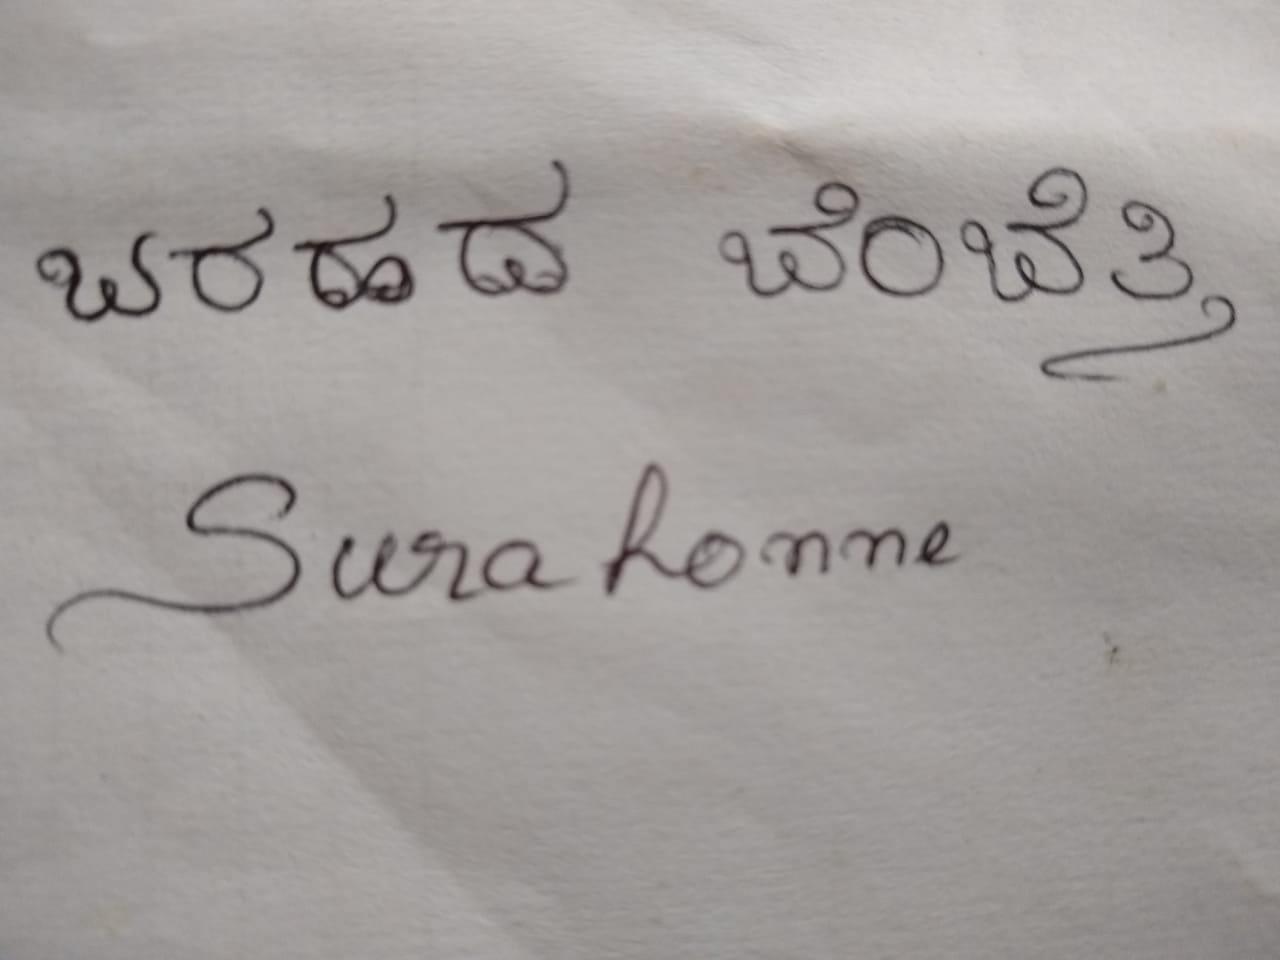 ಬರಹದ ಬೆಂಬೆತ್ತಿ
Surahonne